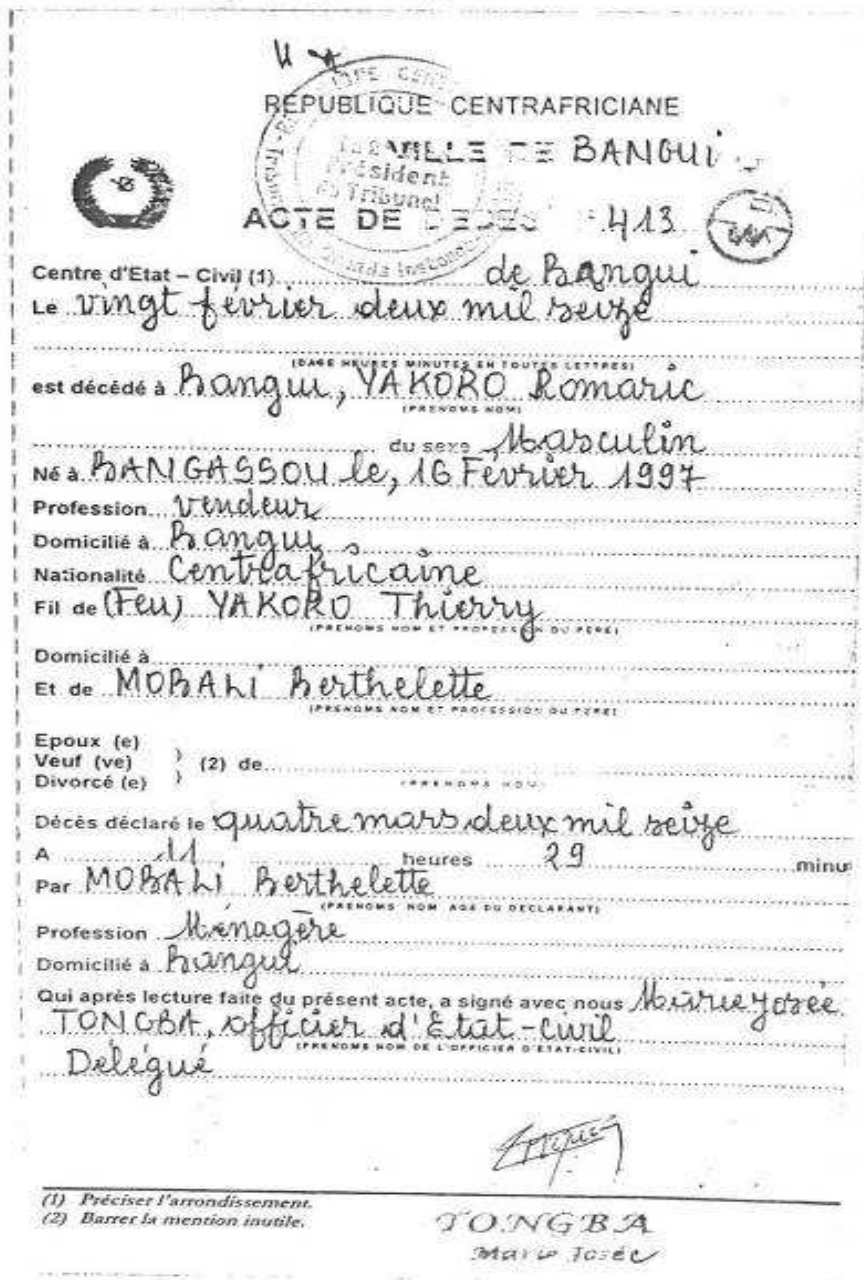 RÉPUBLIQUE CENTRAFRICIANE
VILLE DE BANGUI
Président
du Tribunal
ACTE DE DECES 413
Centre d'Etat – Civil (1) de Bangui
Le vingt février deux mil seize
(DATE HEURES MINUTES EN TOUTES LETTRES)
est décédé à Bangui, YAKORO Romaric
(PRENOMS NOM)
du sexe Masculin
Né à BANGASSOU le, 16 Février 1997
Profession vendeur
Domicilié à Bangui
Nationalité Centrafricaine
Fil de (Feu) YAKORO Thierry
(PRENOMS NOM ET PROFESSION DU PERE)
Domicilié à
Et de MOBALI Berthelette
(PRENOMS NOM ET PROFESSION DU PERE)
Epoux (e)
Veuf (ve) } (2) de
Divorcé (e) }
(PRENOMS NOM)
Décès déclaré le quatre mars deux mil seize
A 11 heures 29 minu
Par MOBALI Berthelette
(PRENOMS NOM AGE DU DECLARANT)
Profession Ménagère
Domicilié à Bangui
Qui après lecture faite du présent acte, a signé avec nous Marie Josée
TONGBA, officier d'Etat-civil
(PRENOMS NOM DE L'OFFICIER D'ETAT-CIVIL)
Délégué
(1) Préciser l'arrondissement.
(2) Barrer la mention inutile.
TONGBA
Marie Josée